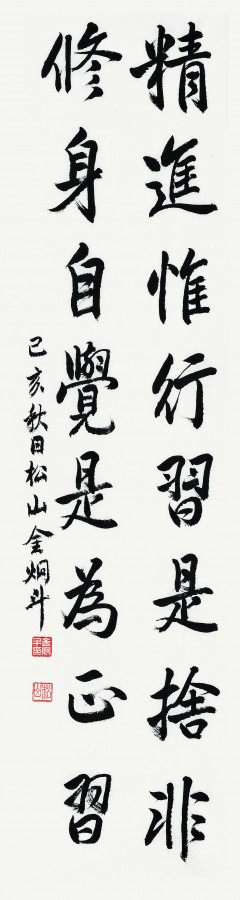 精進惟行習是捨非
修身自覺是為正習
己亥秋日松山金炯斗